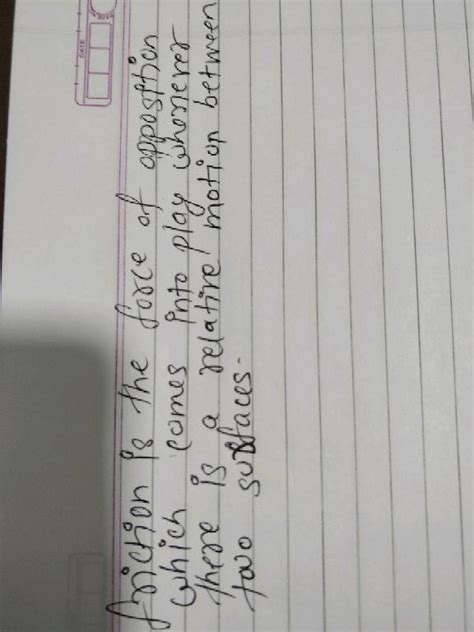 friction is the force of opposition
which comes into play whenever
there is a relative motion between
two surfaces.
DATE